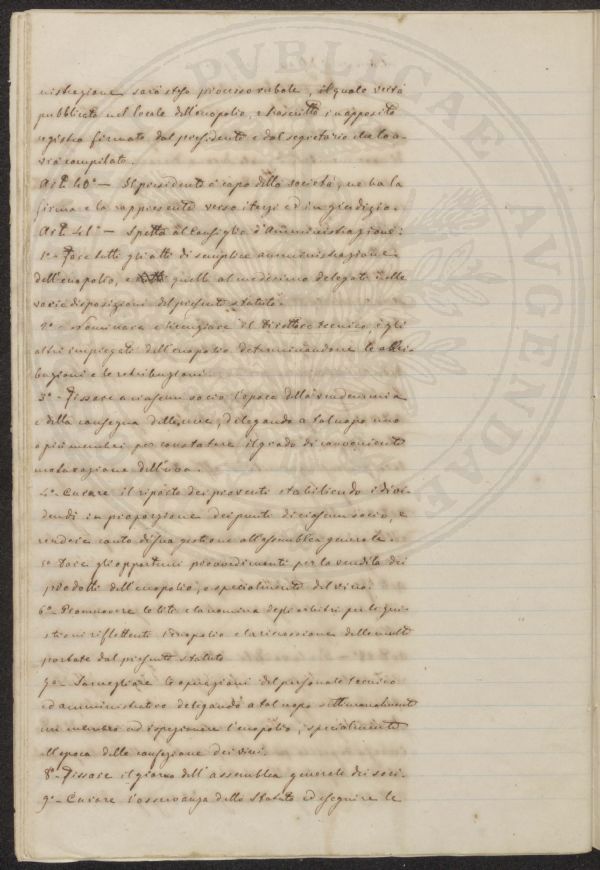 nistrazione sarà steso processo verbale, il quale verrà
pubblicato nel locale dell'enopolio, e trascritto in apposito
registro firmato dal presidente e dal segretario che lo a-
vrà compilato.
Art. 40° — Il presidente è capo della società, ne ha la
firma e la rappresenta verso i terzi ed in giudizio.
Art. 41° — Spetta al Consiglio d'Amministrazione:
1° - Fare tutti gli atti di semplice amministrazione
dell'enopolio, e quelli al medesimo delegati nelle
varie disposizioni del presente statuto.
2° - Nominare e licenziare il Direttore tecnico, e gli
altri impiegati dell'enopolio determinandone le attri-
buzioni e le retribuzioni.
3° - Fissare a ciascun socio l'epoca della vendemmia
e della consegna delle uve, delegando a tal uopo uno
o più membri per constatare il grado di conveniente
maturazione dell'uva.
4° - Curare il riparto dei proventi stabilendo i divi-
dendi in proporzione dei punti di ciascun socio, e
rendere conto di sua gestione all'assemblea generale.
5° Dare gli opportuni provvedimenti per la vendita dei
prodotti dell'enopolio, e specialmente del vino.
6° - Promuovere le liti e la nomina degli arbitri per le qui-
stioni riflettenti l'enopolio e la riscossione delle multe
portate dal presente statuto
7° - Sorvegliare le operazioni del personale tecnico
ed amministrativo delegando a tal uopo settimanalmente
un membro ad ispezionare l'enopolio, specialmente
all'epoca della confezione dei vini.
8° - Fissare il giorno dell'assemblea generale dei soci.
9° - Curare l'osservanza dello Statuto ed eseguire le
PVBLICAE
AVGENDAE